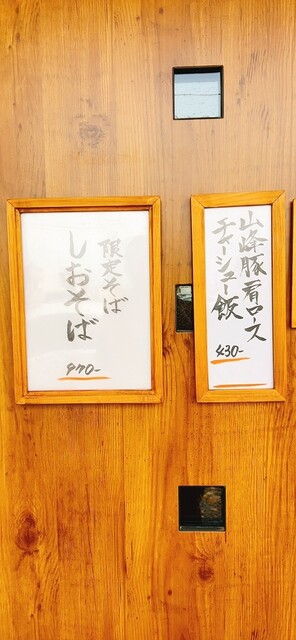 山峰豚肩ロース
チャーシュー飯
430-
限定そば
しおそば
970-